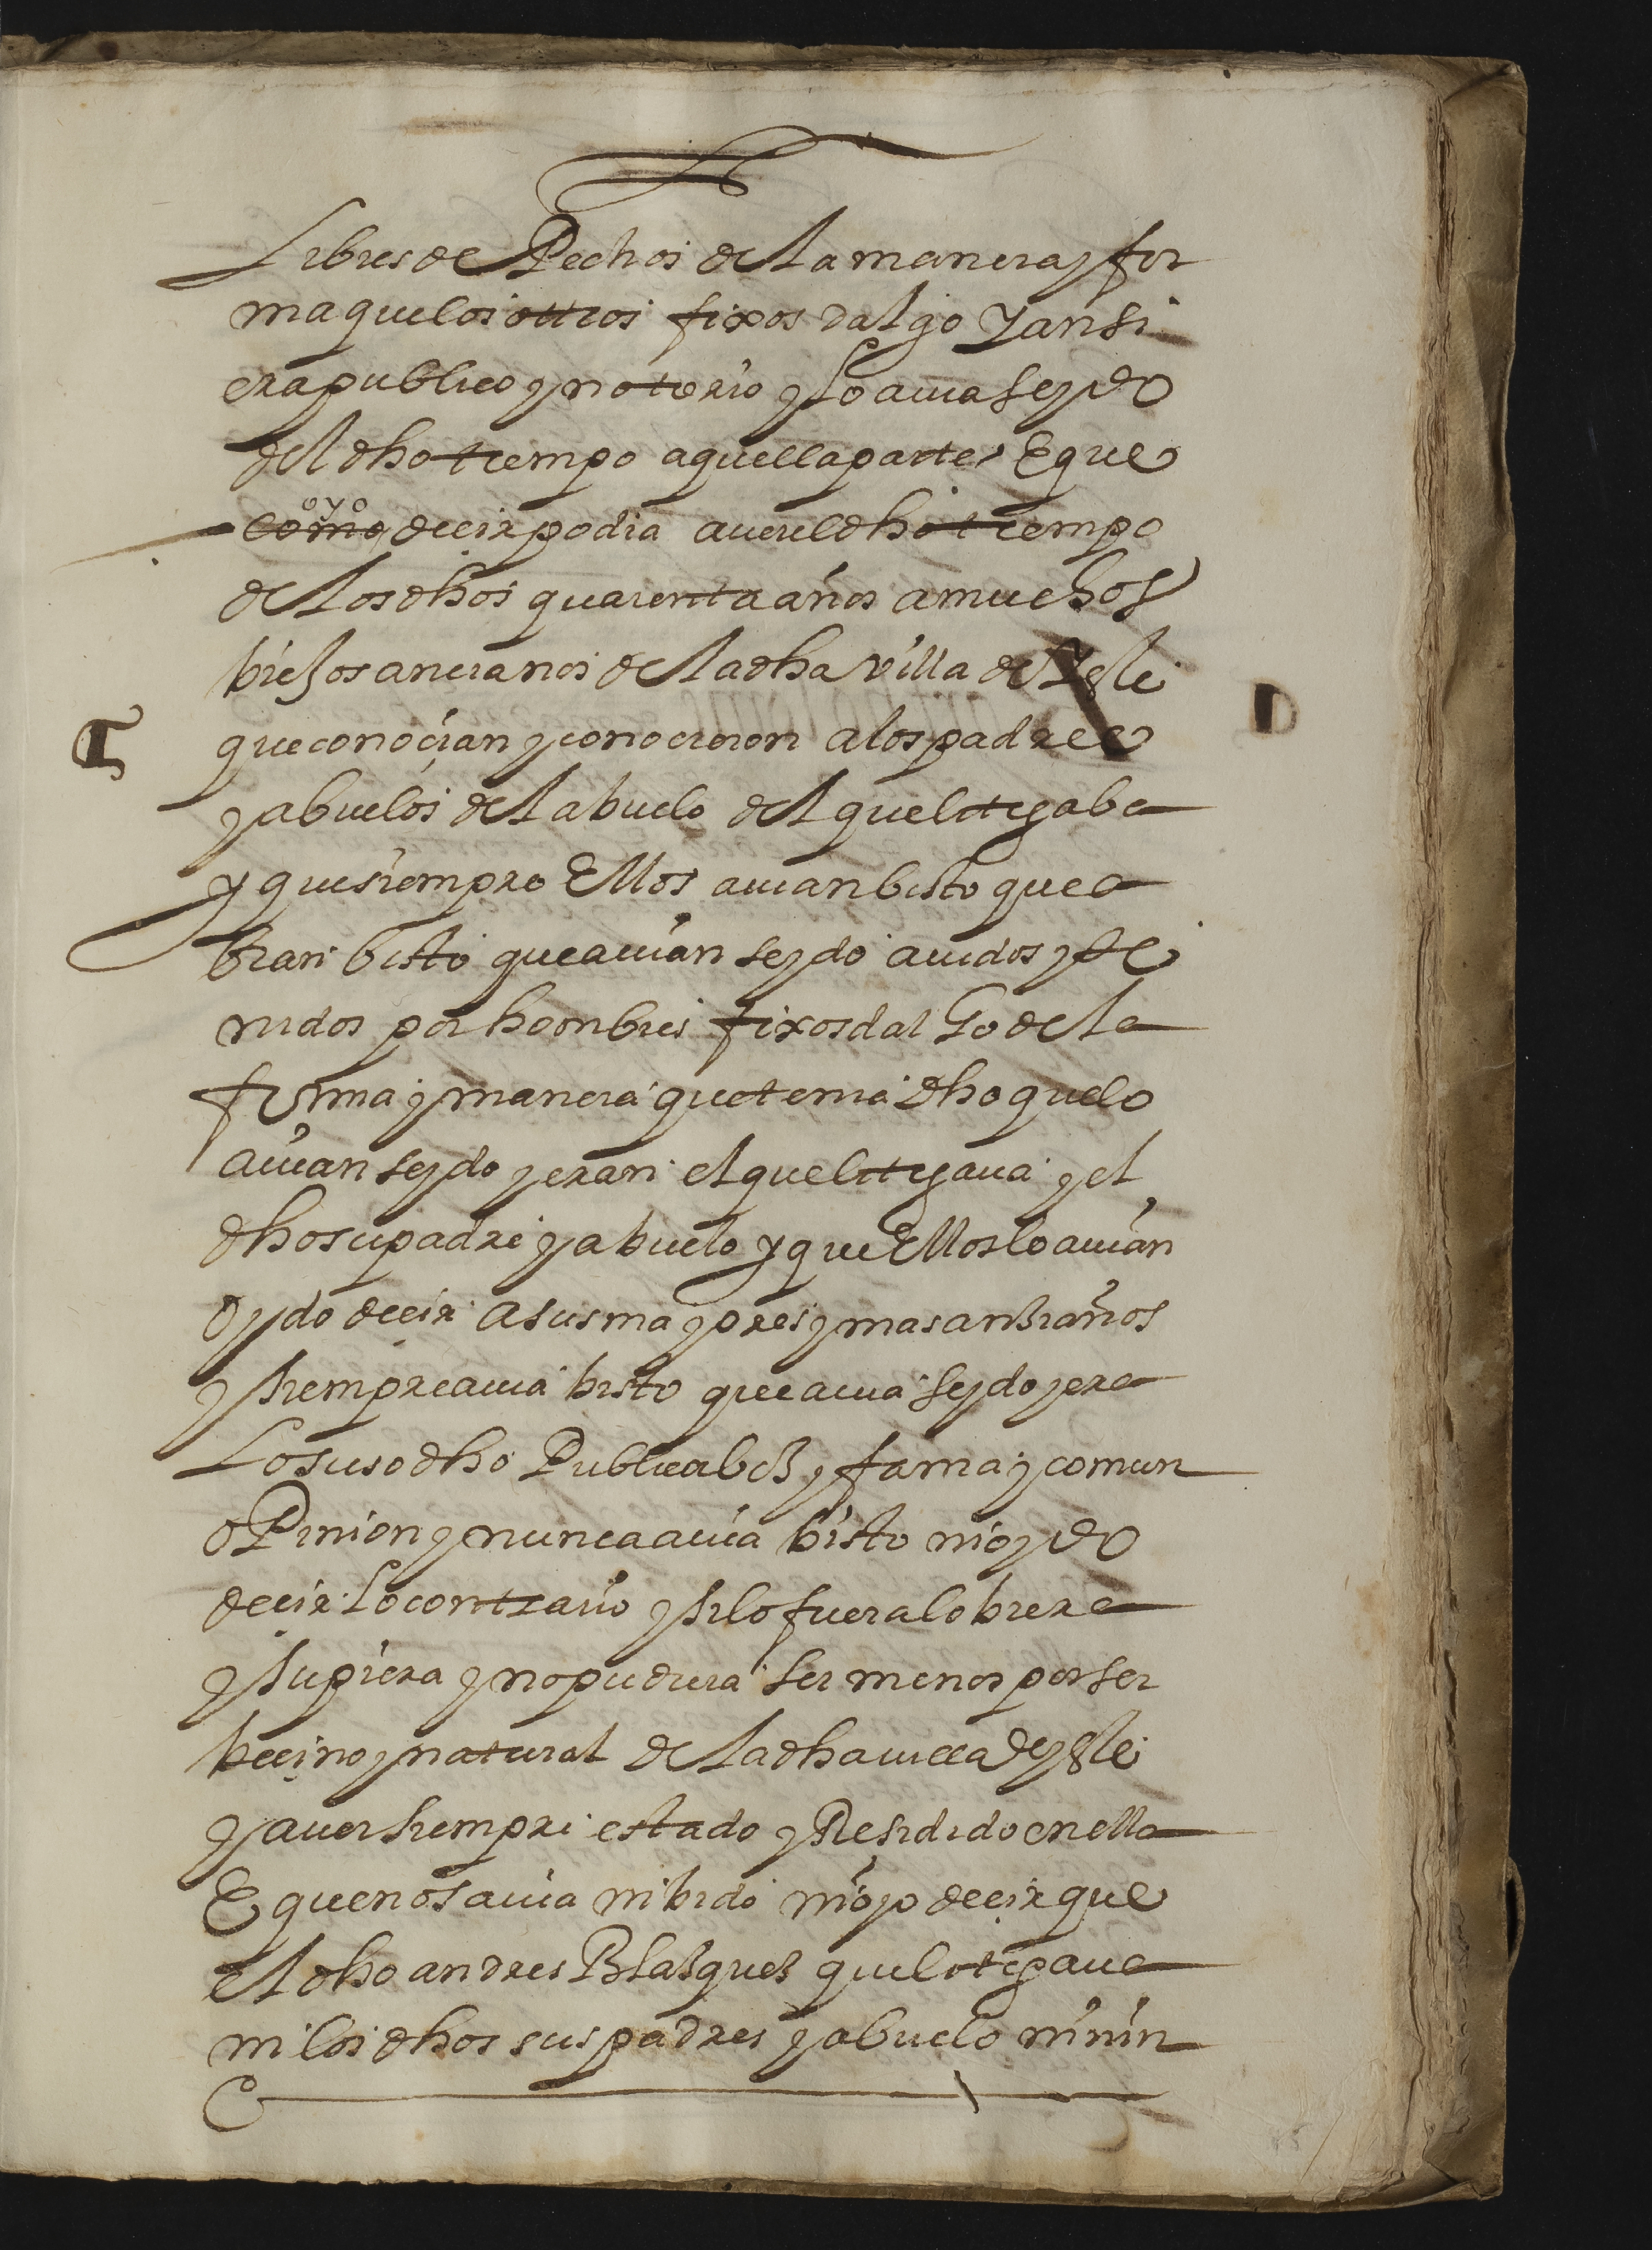 Libres de Pechos de la manera y for
ma que los otros fixos dalgo Y ansi
era publico y notorio y lo auia seydo
del dho tiempo aquella parte E que
como oyo decir podia auer el dho tiempo
de los dhos quarenta años a muchos
biejos ancianos de la dha villa de Yste
que conoçian y conocieron a los padres
y abuelos del abuelo del que litigaba
y que siempre Ellos auian bisto que a
bian bisto que auian seydo auidos y te
nidos por hombres fixosdalgo de la
forma y manera que tenia dho que lo
auian seydo y eran el que litigaua y el
dho su padre y abuelo y que Ellos lo auian
oydo decir a sus mayores y mas anzianos
y siempre auia bisto que auia seydo y era
Lo susodho Publica boz y fama y comun
oPinion y nunca auia bisto ni oydo
decir Lo contrario y si lo fuera lo biera
y supiera y no pudiera ser menos por ser
beçino y natural de la dha uilla de yste
y auer siempre estado y Residido en ella
E que no sauia ni bido ni oyo deçir que
el dho andres Blazquez que litigaua
ni los dhos sus padres y abuelo ni nin